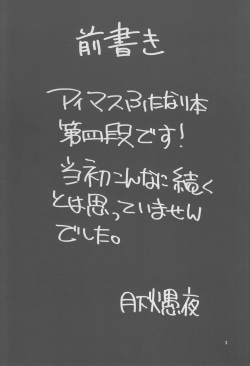 前書き
アイマスふたなり本
第四段です!
当初こんなに続く
とは思っていません
でした。
月下火愚夜
3